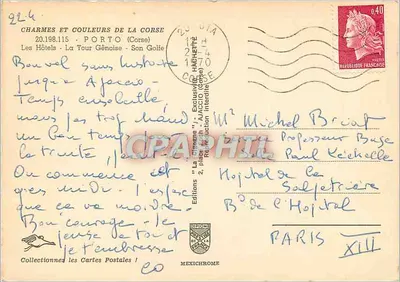 224
CHARMES ET COULEURS DE LA CORSE
20.198.115 - PORTO (Corse)
Les Hôtels - La Tour Génoise - Son Golfe
Bon vol sans histoire
jusqu'à Ajaccio -
Temps ensoleillé,
mais pas trop chaud
un bon temps de
la truite
On commence et
après midi. J'espère
que ça va mieux -
Bon courage - Je
pense à toi et
je t'embrasse
Collectionnez les Cartes Postales !
Editions "La Cigogne", Exclusivité HACHETTE
2, place AJACCIO (Corse)
Reproduction interdite
MEXICHROME
CORSE
0,40
REPUBLIQUE FRANÇAISE
Mr Michel Briat
Professeur Buge
Paul Kéchelle
Hopital de la
Salpetrière
Bd de l'Hopital
PARIS XIII
CPAPHIL.COM